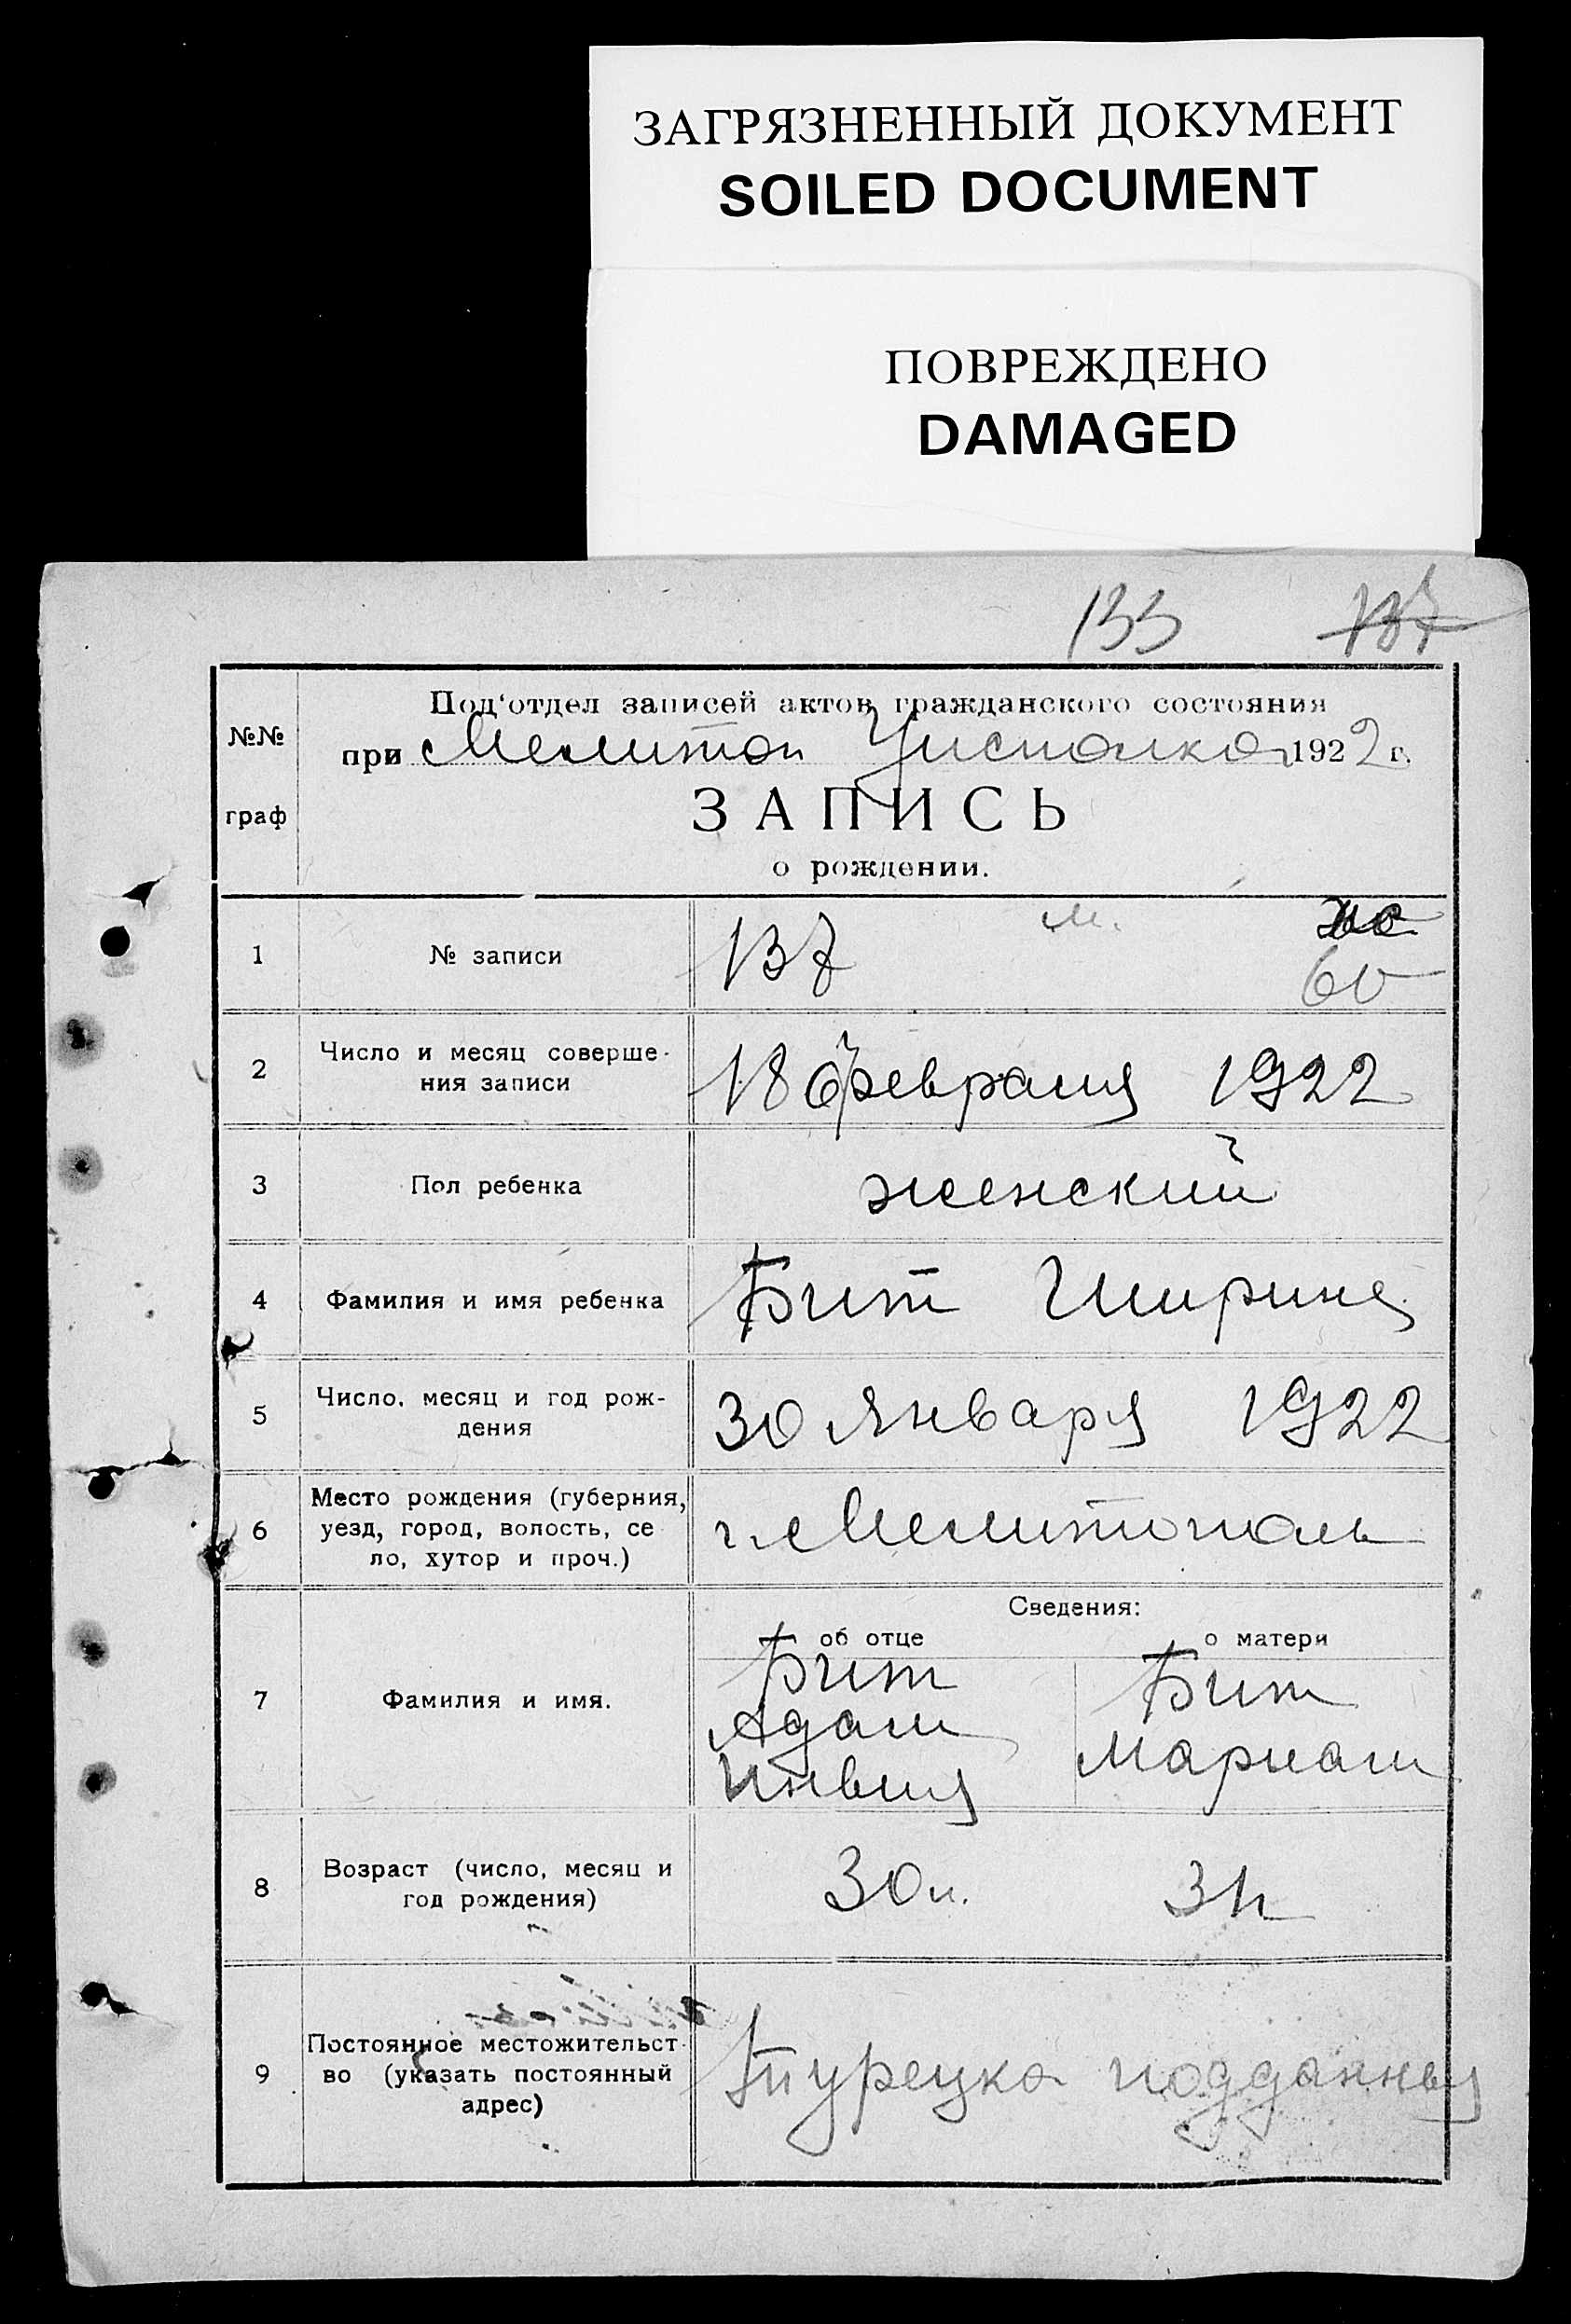 ЗАГРЯЗНЕННЫЙ ДОКУМЕНТ
SOILED DOCUMENT
ПОВРЕЖДЕНО
DAMAGED
133 137
№№
граф
Под'отдел записей актов гражданского состояния
при Мелитоп Уисполко 1922 г.
ЗАПИСЬ
о рождении.
1 № записи 137 м. жс
60
2 Число и месяц соверше-
ния записи
18 февраля 1922
3 Пол ребенка женский
4 Фамилия и имя ребенка Бит Ширине
5 Число, месяц и год рож-
дения
30 Января 1922
6 Место рождения (губерния,
уезд, город, волость, се
ло, хутор и проч.)
г. Мелитополь
Сведения:
об отце о матери
7 Фамилия и имя.
Бит
Адам
Бит
Мариам
8 Возраст (число, месяц и
год рождения)
30 л. 31
9 Постоянное местожительст-
во (указать постоянный
адрес)
Турецко подданны